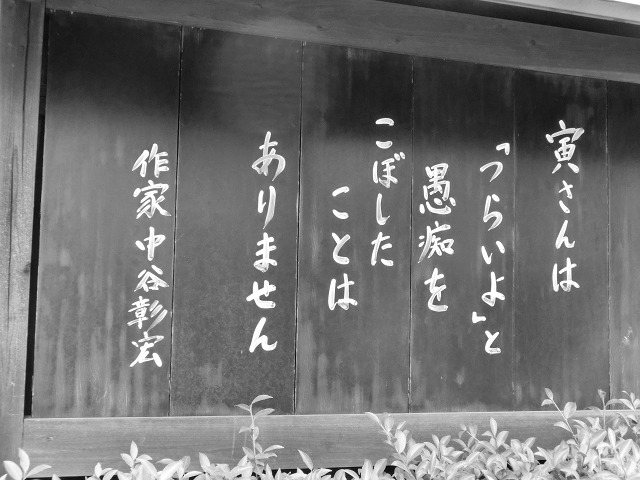 寅さんは
「つらいよ」と
愚痴を
こぼした
ことは
ありません
作家中谷彰宏